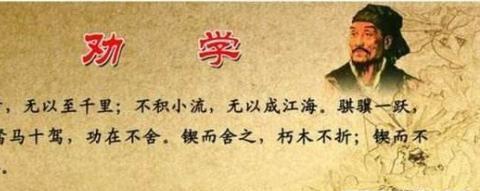 劝学
，无以至千里；不积小流，无以成江海。骐骥一跃，
驽马十驾，功在不舍。锲而舍之，朽木不折；锲而不
。